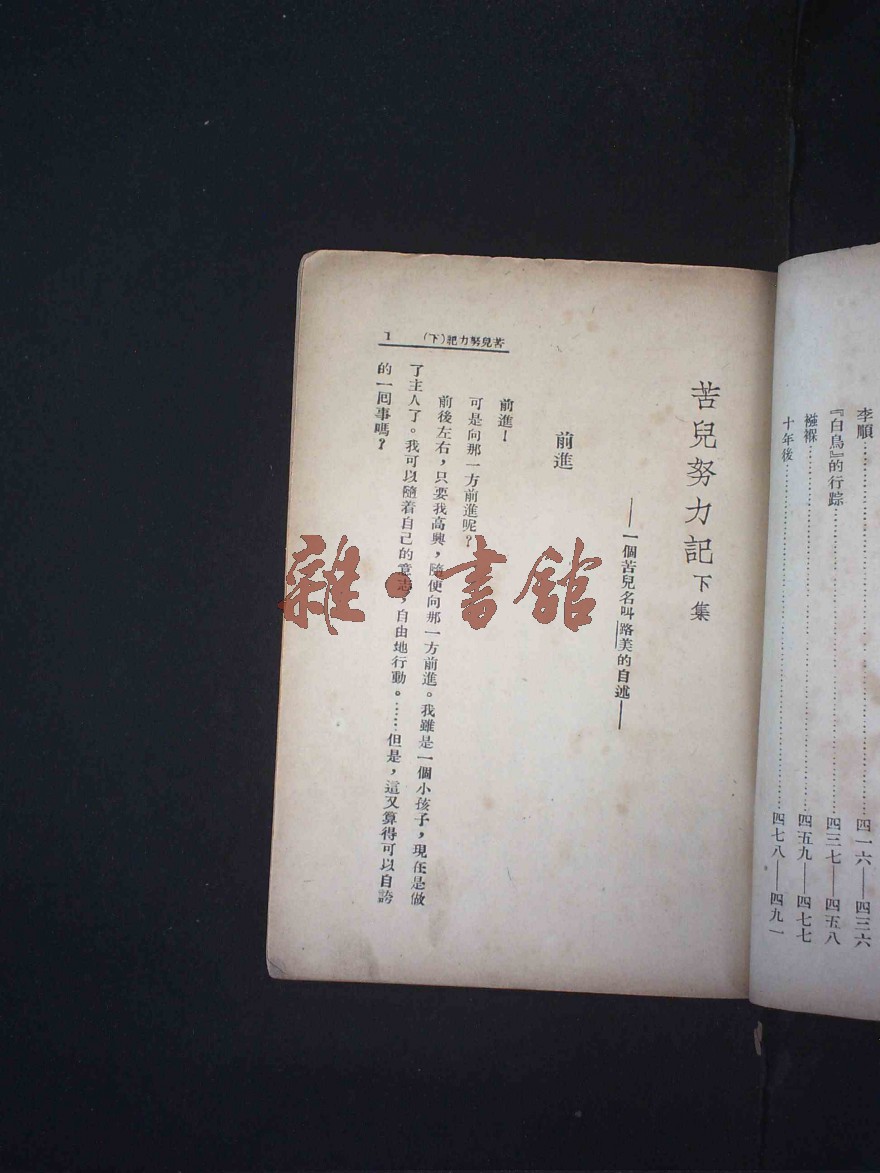 李順………………四一六——四三六
『白鳥』的行踪………………四三七——四五八
襁褓………………四五九——四七七
十年後………………四七八——四九一
苦兒努力記 下集
——一個苦兒名叫路美的自述——
前進
前進！
可是向那一方前進呢？
前後左右，只要我高興，隨便向那一方前進。我雖是一個小孩子，現在是做
了主人了。我可以隨着自己的意志，自由地行動。……但是，這又算得可以自誇
的一囘事嗎？
苦兒努力記（下） 1
雜·書館